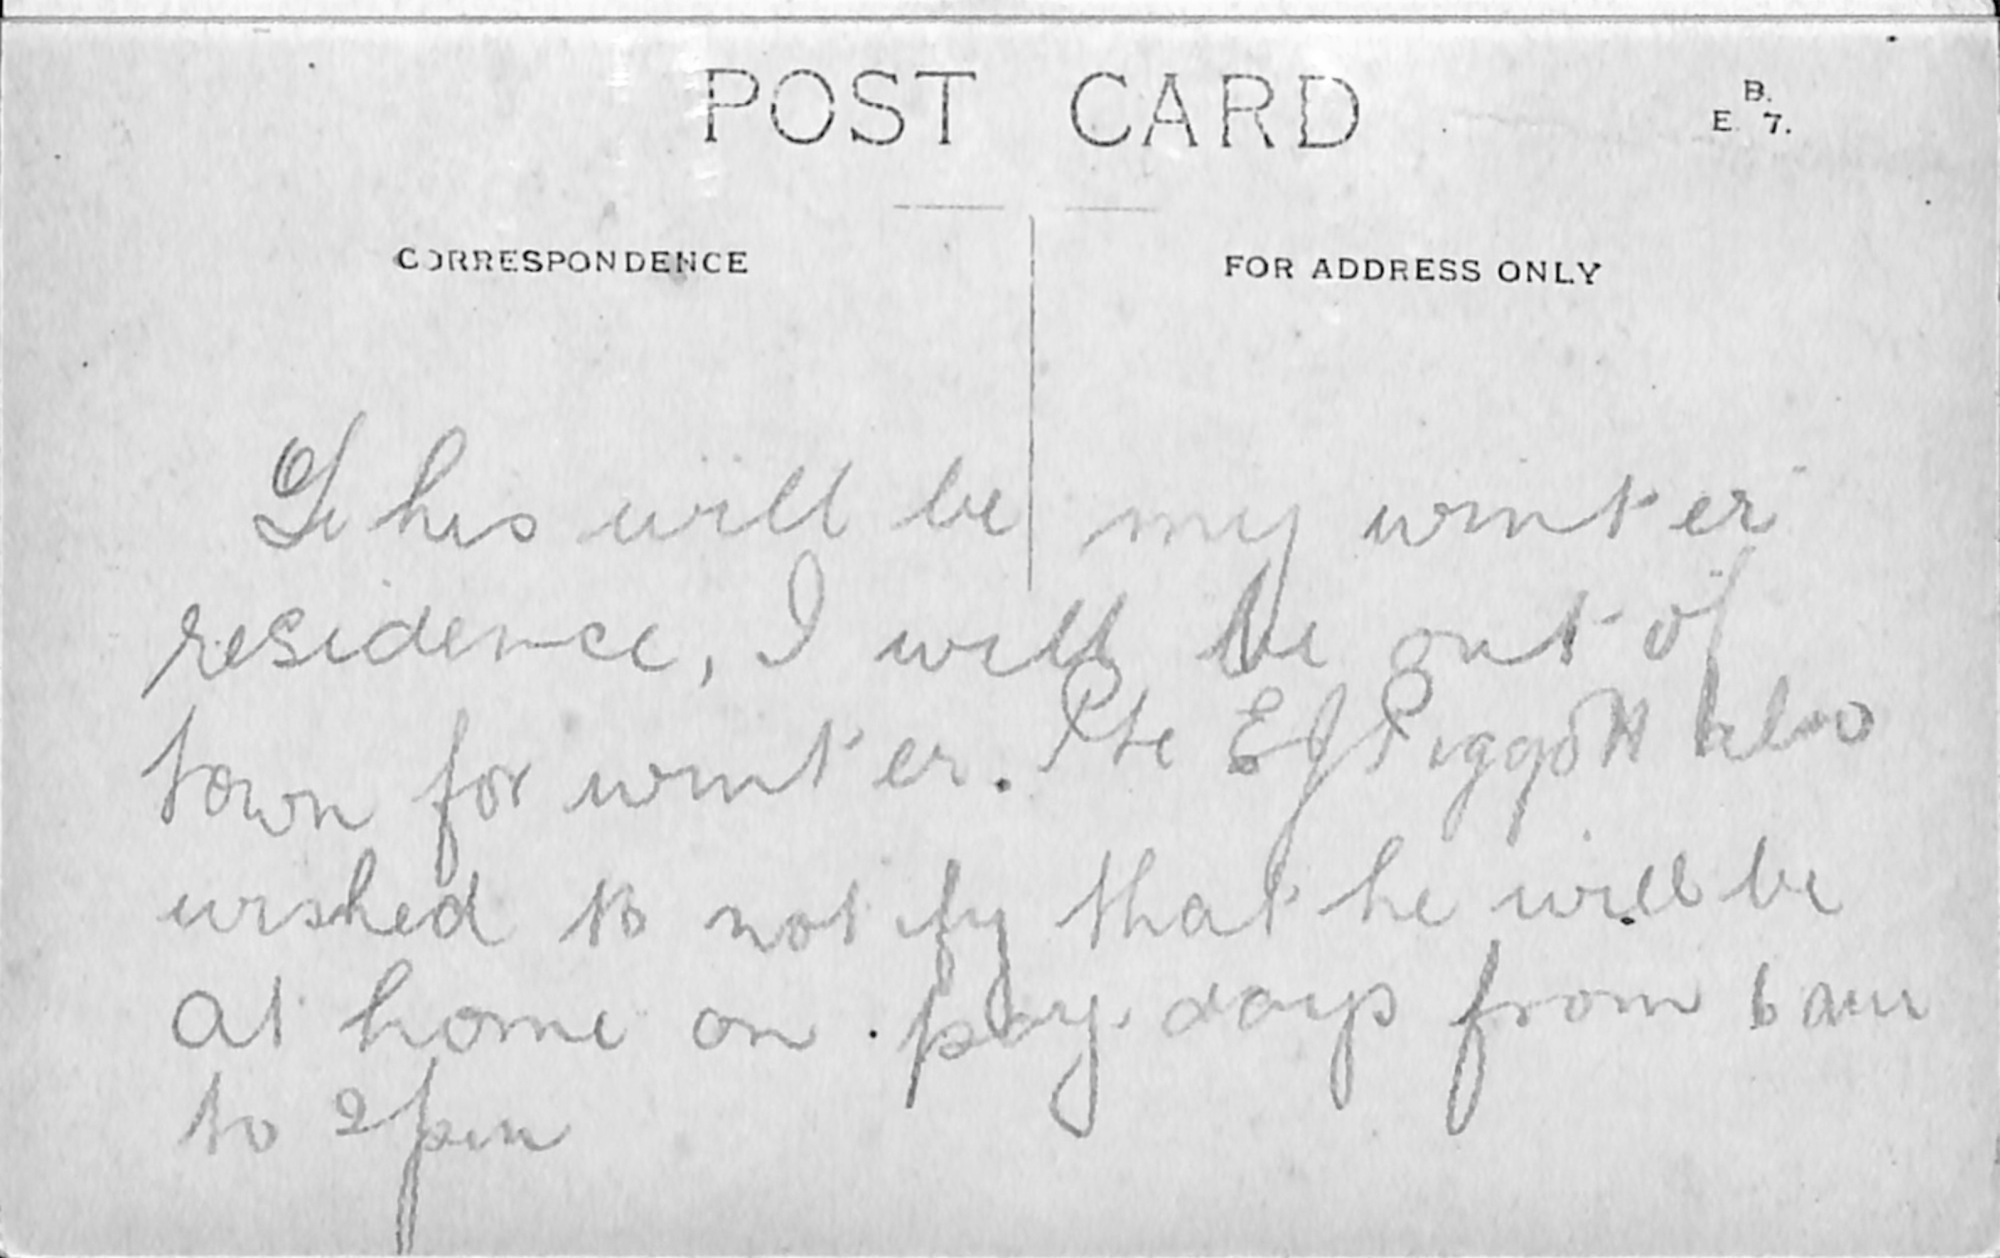 POST CARD
B.
E. 7.
CORRESPONDENCE
FOR ADDRESS ONLY
This will be my winter
residence, I will be out of
town for winter. Pte E J Piggott also
wished to notify that he will be
at home on pay days from 6 am
to 2 pm